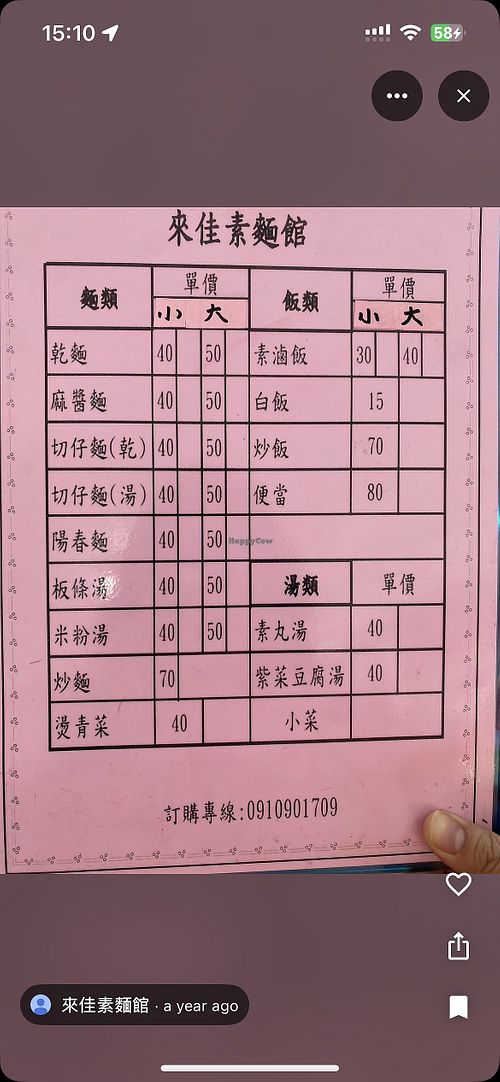 15:10
58
來佳素麵館
麵類 單價 飯類 單價
小 大 小 大
乾麵 40 50 素滷飯 30 40
麻醬麵 40 50 白飯 15
切仔麵(乾) 40 50 炒飯 70
切仔麵(湯) 40 50 便當 80
陽春麵 40 50
HappyCow
板條湯 40 50 湯類 單價
米粉湯 40 50 素丸湯 40
炒麵 70 紫菜豆腐湯 40
燙青菜 40 小菜
訂購專線:0910901709
來佳素麵館 · a year ago